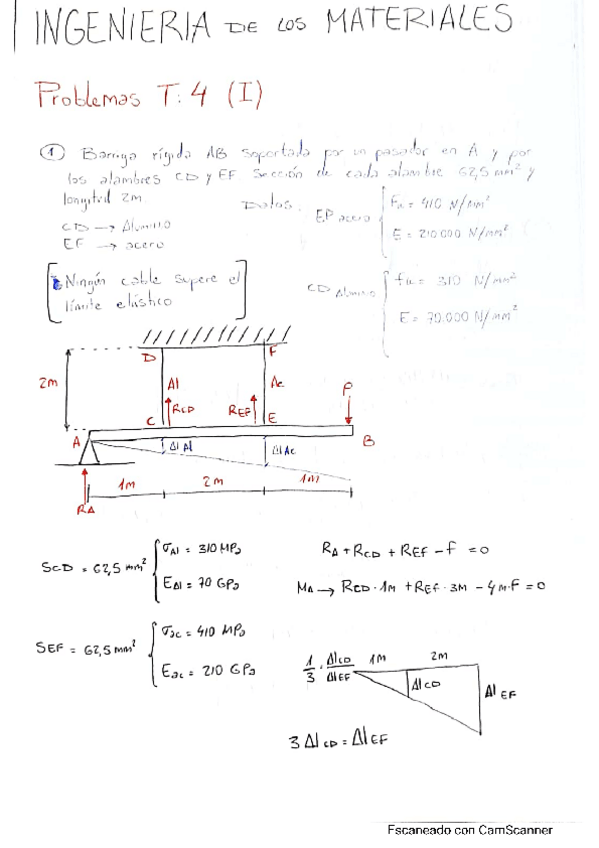 INGENIERIA DE LOS MATERIALES
Problemas T:4 (I)
① Barriga rígida AB soportada por un pasador en A y por
los alambres CD y EF sección de cada alambre 62,5 mm² y
longitud 2m
Datos:
CD → Aluminio
EF → acero
EP acero
Fu = 410 N/mm²
E = 210000 N/mm²
[Ningún cable supere el
límite elástico]
CD Aluminio
fu = 310 N/mm²
E = 70.000 N/mm²
D F
2m Al Ac P
C RCD REF E
A B
Δl Al Δl Ac
1m 2m 1m
RA
SCD = 62,5 mm²
σAl = 310 MPa
EAl = 70 GPa
RA + RCD + REF - F = 0
MA → RCD · 1m + REF · 3M - 4M · F = 0
SEF = 62,5 mm²
σac = 410 MPa
Eac = 210 GPa
1/3 · ΔlCD/ΔlEF 1m 2m
ΔlCD Δl EF
3 ΔlCD = ΔlEF
Escaneado con CamScanner